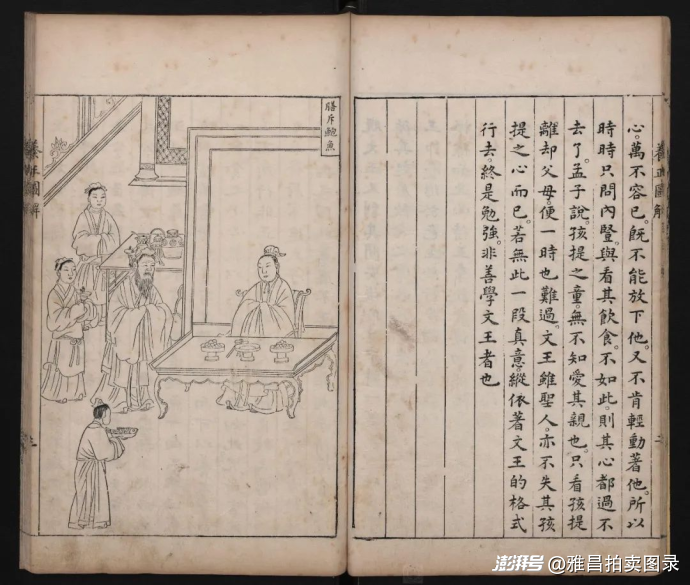 心。萬不容已。旣不能放下他。又不肯輕動著他。所以
時時只問內豎。與看其飲食。不如此。則其心都過不
去了。孟子說。孩提之童。無不知愛其親也。只看孩提
離却父母。便一時也難過。文王雖聖人。亦不失其孩
提之心而已。若無此一段真意。縱依著文王的格式
行去。終是勉強。非善學文王者也
養正圖解
膳斥鮑魚
養正圖解
澎湃号@雅昌拍卖图录